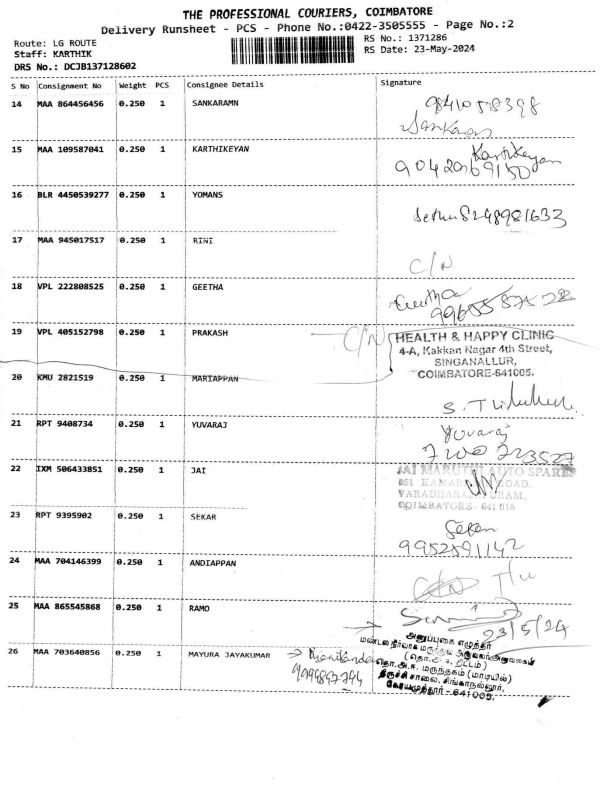 THE PROFESSIONAL COURIERS, COIMBATORE
Delivery Runsheet - PCS - Phone No.:0422-3505555 - Page No.:2
Route: LG ROUTE
Staff: KARTHIK
DRS No.: DCJB137128602
RS No.: 1371286
RS Date: 23-May-2024
S No Consignment No Weight PCS Consignee Details Signature
14 MAA 864456456 0.250 1 SANKARAMN 9841058398
Sankaran
15 MAA 109587041 0.250 1 KARTHIKEYAN Karthikeyan
9042069150
16 BLR 4450539277 0.250 1 YOMANS Sethu 8248981633
17 MAA 945017517 0.250 1 RINI
C/N
18 VPL 222808525 0.250 1 GEETHA Geetha
19 VPL 405152798 0.250 1 PRAKASH C/N HEALTH & HAPPY CLINIC
4-A, Kakkan Nagar 4th Street,
SINGANALLUR,
COIMBATORE-641005.
20 KMU 2821519 0.250 1 MARIAPPAN
21 RPT 9408734 0.250 1 YUVARAJ Yuvaraj
22 IXM 506433851 0.250 1 JAI JAI MARUTHI AUTO SPARES
ROAD,
COIMBATORE- 641 015
23 RPT 9395902 0.250 1 SEKAR Sekar
9952591142
24 MAA 704146399 0.250 1 ANDIAPPAN C/N
25 MAA 865545868 0.250 1 RAMO
23/5/24
26 MAA 703640856 0.250 1 MAYURA JAYAKUMAR
அனுப்புகை எழுத்தர்
(தொ.அ.ஈ. திட்டம்)
தொ.அ.ஈ. மருந்தகம் (மாடியில்)
திருச்சி சாலை, சிங்காநல்லூர்,
கோயமுத்தூர் - 641005.